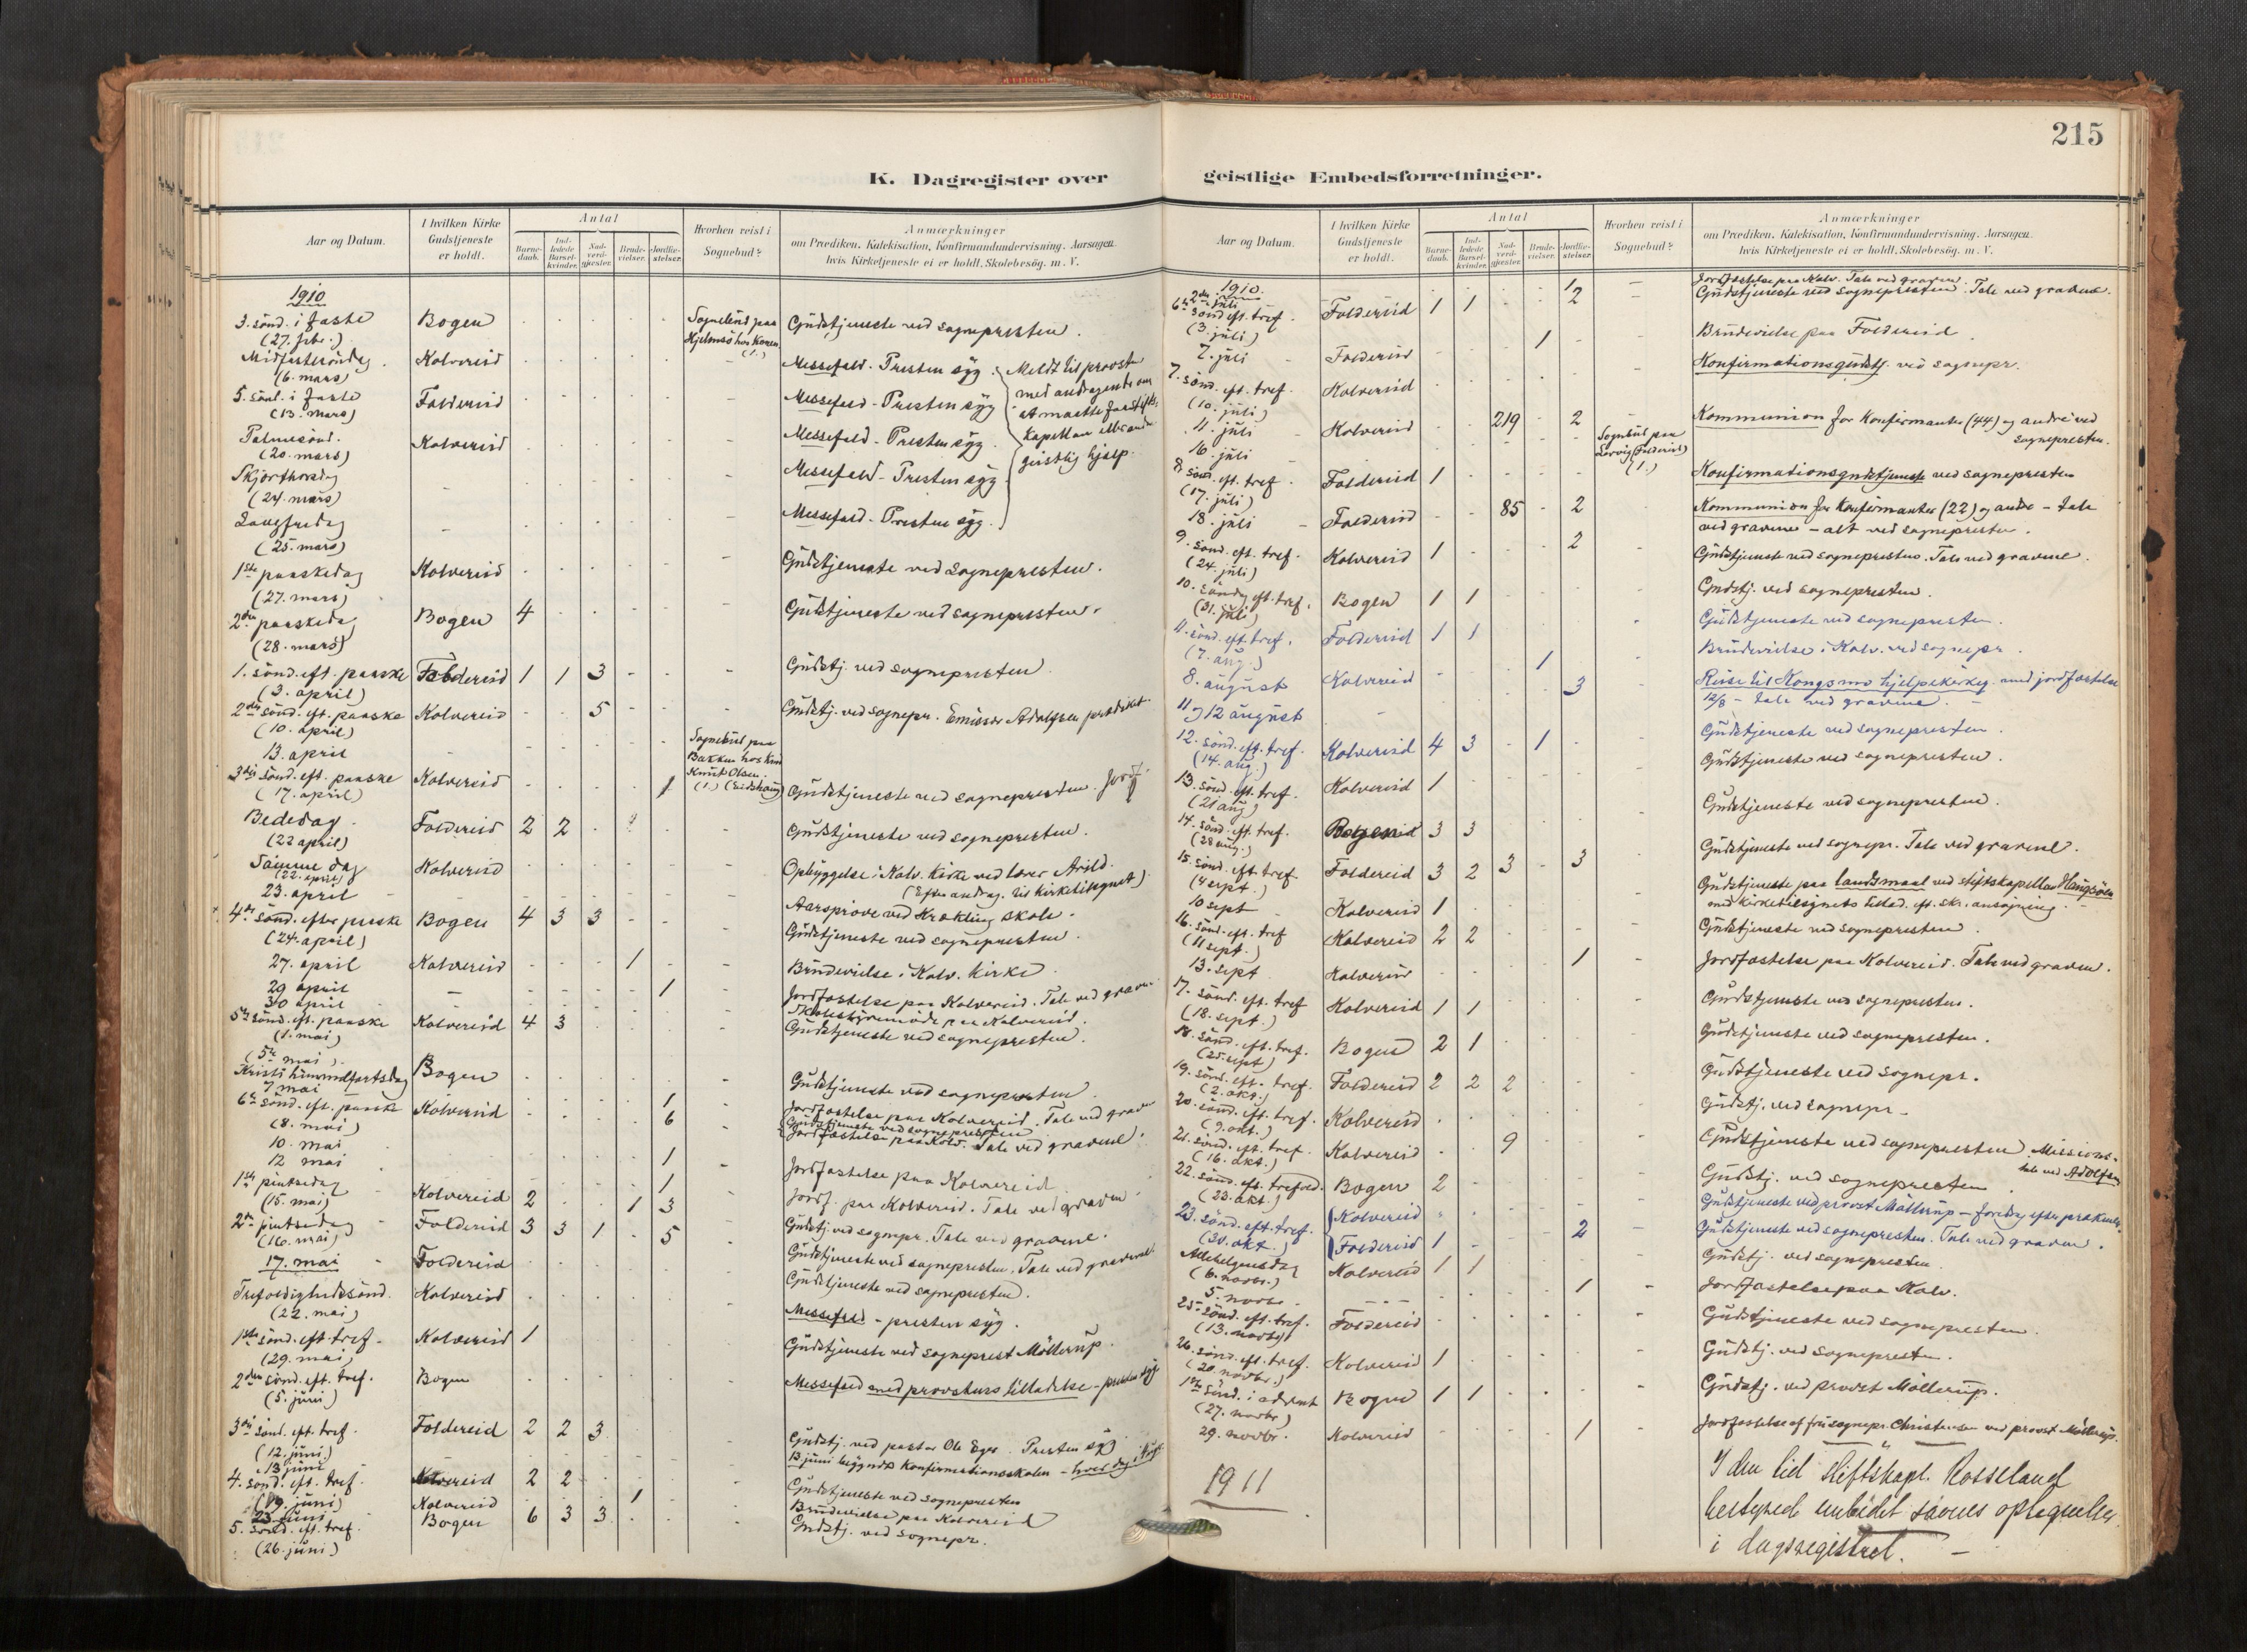 215
K. Dagregister over
Aar og Datum.
I hvilken Kirke Gudstjeneste er holdt.
Antal
Barne-daab.
Ind-ledede Barsel-kvinder.
Nad-verd-gjæster.
Brude-vielser.
Jordfæ-stelser.
Hvorhen reist i Sognebud?
Anmærkninger
om Prædiken, Katekisation, Konfirmandundervisning, Aarsagen
hvis Kirketjeneste ei er holdt, Skolebesög. m. V.
1910
3. sönd. i faste (27. febr.) Bogen Gudstjeneste ved sognepresten.
Midfastesöndag (6. mars) Kolvereid Messefald - Presten syg.
5. sönd. i faste (13. mars) Foldereid Messefald - Presten syg
Palmesönd. (20. mars) Kolvereid Messefald - Presten syg.
Skjærthorsdag (24. mars) - Messefald - Presten syg
Langfredag (25. mars) - Messefald - Presten syg.
Meldt til provsten
geistlig hjælp.
1ste paaskedag (27. mars) Kolvereid Gudstjeneste ved sognepresten.
2den paaskedag (28. mars) Bogen 4 Gudstjeneste ved sognepresten.
1. sönd. eft. paaske (3. april) Foldereid 1 1 3 - - - Gudstj. ved sognepresten
2den sönd. eft. paaske (10. april) Kolvereid - - 5 - - - Gudstj. ved sognepr. Emissær Adolfsen prædiket.
13. april - Sognebud paa Bakken hos Knut Olsen. (1.)
3die sönd. eft. paaske (17. april) Kolvereid 1 Gudstjeneste ved sognepresten. Jordf.
Bededag. (22 april) Foldereid 2 2 Gudstjeneste ved sognepresten.
Samme dag (22. april) Kolvereid Opbyggelse i Kolv. kirke ved lærer Arild.
(Efter andrag. til kirketilsynet)
23. april Aarspröve ved Krækling skole.
4de sönd. efter paaske (24. april) Bogen 4 3 3 - - - Gudstjeneste ved sognepresten.
27. april Kolvereid - - - 1 - - Brudevielse i Kolv. kirke.
29 april - 1 - Jordfæstelse paa Kolvereid. Tale ved graven
30 april Skolestyremöde paa Kolvereid.
5te sönd. eft. paaske (1. mai) Kolvereid 4 3 Gudstjeneste ved sognepresten.
(5te mai) Kristi himmelfartsdag Bogen Gudstjeneste ved sognepresten
7 mai 1 Jordfæstelse paa Kolvereid. Tale ved graven
6te sönd. eft. paaske (8. mai) Kolvereid 6 Gudstjeneste ved sognepresten
10. mai Jordfæstelse paa Kolv. Tale ved gravene.
12 mai 1 Jordfæstelse paa Kolvereid
1 Jordf. paa Kolvereid. Tale ved graven
1ste pintsedag (15. mai) Kolvereid 2 - - 1 3 Gudstj. ved sognepr. Tale ved gravene.
2den pintsedag (16. mai) Foldereid 3 3 1 - 5 Gudstjeneste ved sognepresten. Tale ved gravene.
17. mai Foldereid Gudstjeneste ved sognepresten.
Trefoldighedssönd. (22. mai) Kolvereid Messefald - presten syg.
1ste sönd. eft. tref. (29. mai) Kolvereid 1 Gudstjeneste ved sogneprest Möllerup.
2den sönd. eft. tref. (5. juni) Bogen Messefald med provstens tilladelse - presten syg
3die sönd. eft. tref. (12. juni) Foldereid 2 2 3 Gudstj. ved pastor Ole Eger. Presten syg
13 juni 13 juni begyndte konfirmationsskolen
4. sönd. eft. tref. (19. juni) Kolvereid 2 2 Gudstjeneste ved sognepresten
23 juni Kolvereid 1 Brudevielse paa Kolvereid
5. sönd. eft. tref. (26. juni) Bogen 6 3 3 Gudstj. ved sognepr.
geistlige Embedsforretninger.
Aar og Datum.
I hvilken Kirke Gudstjeneste er holdt.
Antal
Barne-daab.
Ind-ledede Barsel-kvinder.
Nad-verd-gjæster.
Brude-vielser.
Jordfæ-stelser.
Hvorhen reist i Sognebud?
Anmærkninger
om Prædiken, Katekisation, Konfirmandundervisning, Aarsagen
hvis Kirketjeneste ei er holdt, Skolebesög. m. V.
1910.
2den juli 1 - Jordfæstelse paa Kolv. Tale ved graven.
6te sönd. eft. tref. (3. juli) Foldereid 1 1 - - 2 Gudstjeneste ved sognepresten. Tale ved gravene.
7. juli Foldereid 1 - Brudevielse paa Foldereid
7. sönd. eft. tref. (10. juli) Kolvereid Konfirmationsgudstj. ved sognepr.
11. juli Kolvereid 219 - 2 Kommunion for konfirmanter (44) og andre ved sognepresten.
16. juli Sognebud paa (Foldereid) (1.)
8. sönd. eft. tref. (17. juli) Foldereid 1 Konfirmationsgudstjeneste ved sognepresten
18. juli Foldereid 85 - 2 Kommunion for konfirmanter (22) og andre - tale
ved gravene - alt ved sognepresten.
9. sönd. eft. tref. (24. juli) Kolvereid 1 2 - Gudstjeneste ved sognepresten. Tale ved gravene.
10. söndag eft. tref. (31. juli) Bogen 1 1 Gudstj. ved sognepresten.
11. sönd. eft. tref. (7. aug.) Foldereid 1 1 Gudstjeneste ved sognepresten.
8. august Kolvereid 1 Brudevielse i Kolv. ved sognepr.
11 og 12 august - 3 Reise til Kongsmo hjelpekirkeg. med jordfæstelse
12/8 - tale ved gravene.
12. sönd. eft. tref. (14. aug.) Kolvereid 4 3 - 1 Gudstjeneste ved sognepresten.
13. sönd. eft. tref. (21 aug) Kolvereid 1 Gudstjeneste ved sognepresten.
14. sönd. eft. tref. (28 aug.) Bogen 3 3 Gudstjeneste ved sognepresten.
15. sönd. eft. tref. (4 sept.) Foldereid 3 2 3 - 3 Gudstjeneste ved sognepr. Tale ved gravene.
10 sept Kolvereid 1
16. sönd. eft. tref (11 sept.) Kolvereid 2 2 Gudstjeneste paa landsmaal ved stiftskapellan
med kirketilsynets tillad. eft. skr. ansøgning.
Gudstjeneste ved sognepresten.
13. sept Kolvereid 1 Jordfæstelse paa Kolvereid. Tale ved graven.
17. sönd. eft. tref (18. sept.) Kolvereid 1 1 Gudstjeneste ved sognepresten.
18. sönd. eft. tref. (25. sept) Bogen 2 1 Gudstjeneste ved sognepresten.
19. sönd. eft. tref. (2. okt.) Foldereid 2 2 2 Gudstjeneste ved sognepr.
20. sönd. eft. tref. (9. okt.) Kolvereid Gudstj. ved sognepr.
21. sönd. eft. tref. (16. okt.) Kolvereid 9 Gudstjeneste ved sognepresten. Missions-
tale ved Adolfsen
22. sönd. eft. trefold. (23. okt.) Bogen 2 Gudstj. ved sognepresten.
23. sönd. eft. tref. (30. okt.) Kolvereid Gudstjeneste ved provst Möllerup
Foldereid 1 2 - Gudstjeneste ved sognepresten. Tale ved graven.
Allehelgensdag (6. novbr.) Kolvereid 1 1 Gudstj. ved sognepresten.
5. novbr. - - - 1 - Jordfæstelse paa Kolv.
25. sönd. eft. tref. (13. novbr) Foldereid Gudstjeneste ved sognepresten.
26. sönd. eft. tref. (20. novbr.) Kolvereid 1 Gudstj. ved sognepresten.
1ste sönd. i advent (27. novbr.) Bogen 1 1 Gudstj. ved provst Möllerup.
29. novbr. Kolvereid 1 - Jordfæstelse af fru sognepr. Christensen ved provst Möllerup.
1911
I den tid stiftskapl. Rosseland
bestyred embedet savnes optegnelser
i dagsregistret. -